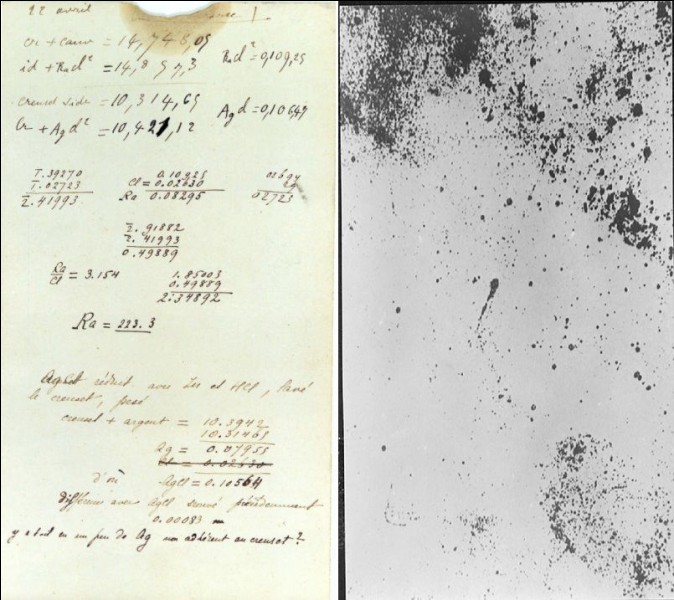 22 avril
cr + carr = 14,748,05
id + RaCl² = 14,857,3
RaCl² = 0,109,25
creuset vide = 10,314,65
Cr + AgCl² = 10,421,12
AgCl = 0,10647
1.39270
1.02723
2.41993
0.10925
Cl = 0.02630
Ra 0.08295
02723
2.91882
2.41993
0.49889
Ra/Cl = 3.154
1.85003
0.49889
2.34892
Ra = 223.3
AgCl réduit avec Zn et HCl, lavé
le creuset, pesé
creuset + argent = 10.3942
10.31465
Ag = 0.07955
Cl = 0.02630
d'où AgCl = 0.10564
différence avec AgCl trouvé précédemment
0.00083
y a-t-il eu un peu de Ag non adhérent au creuset ?